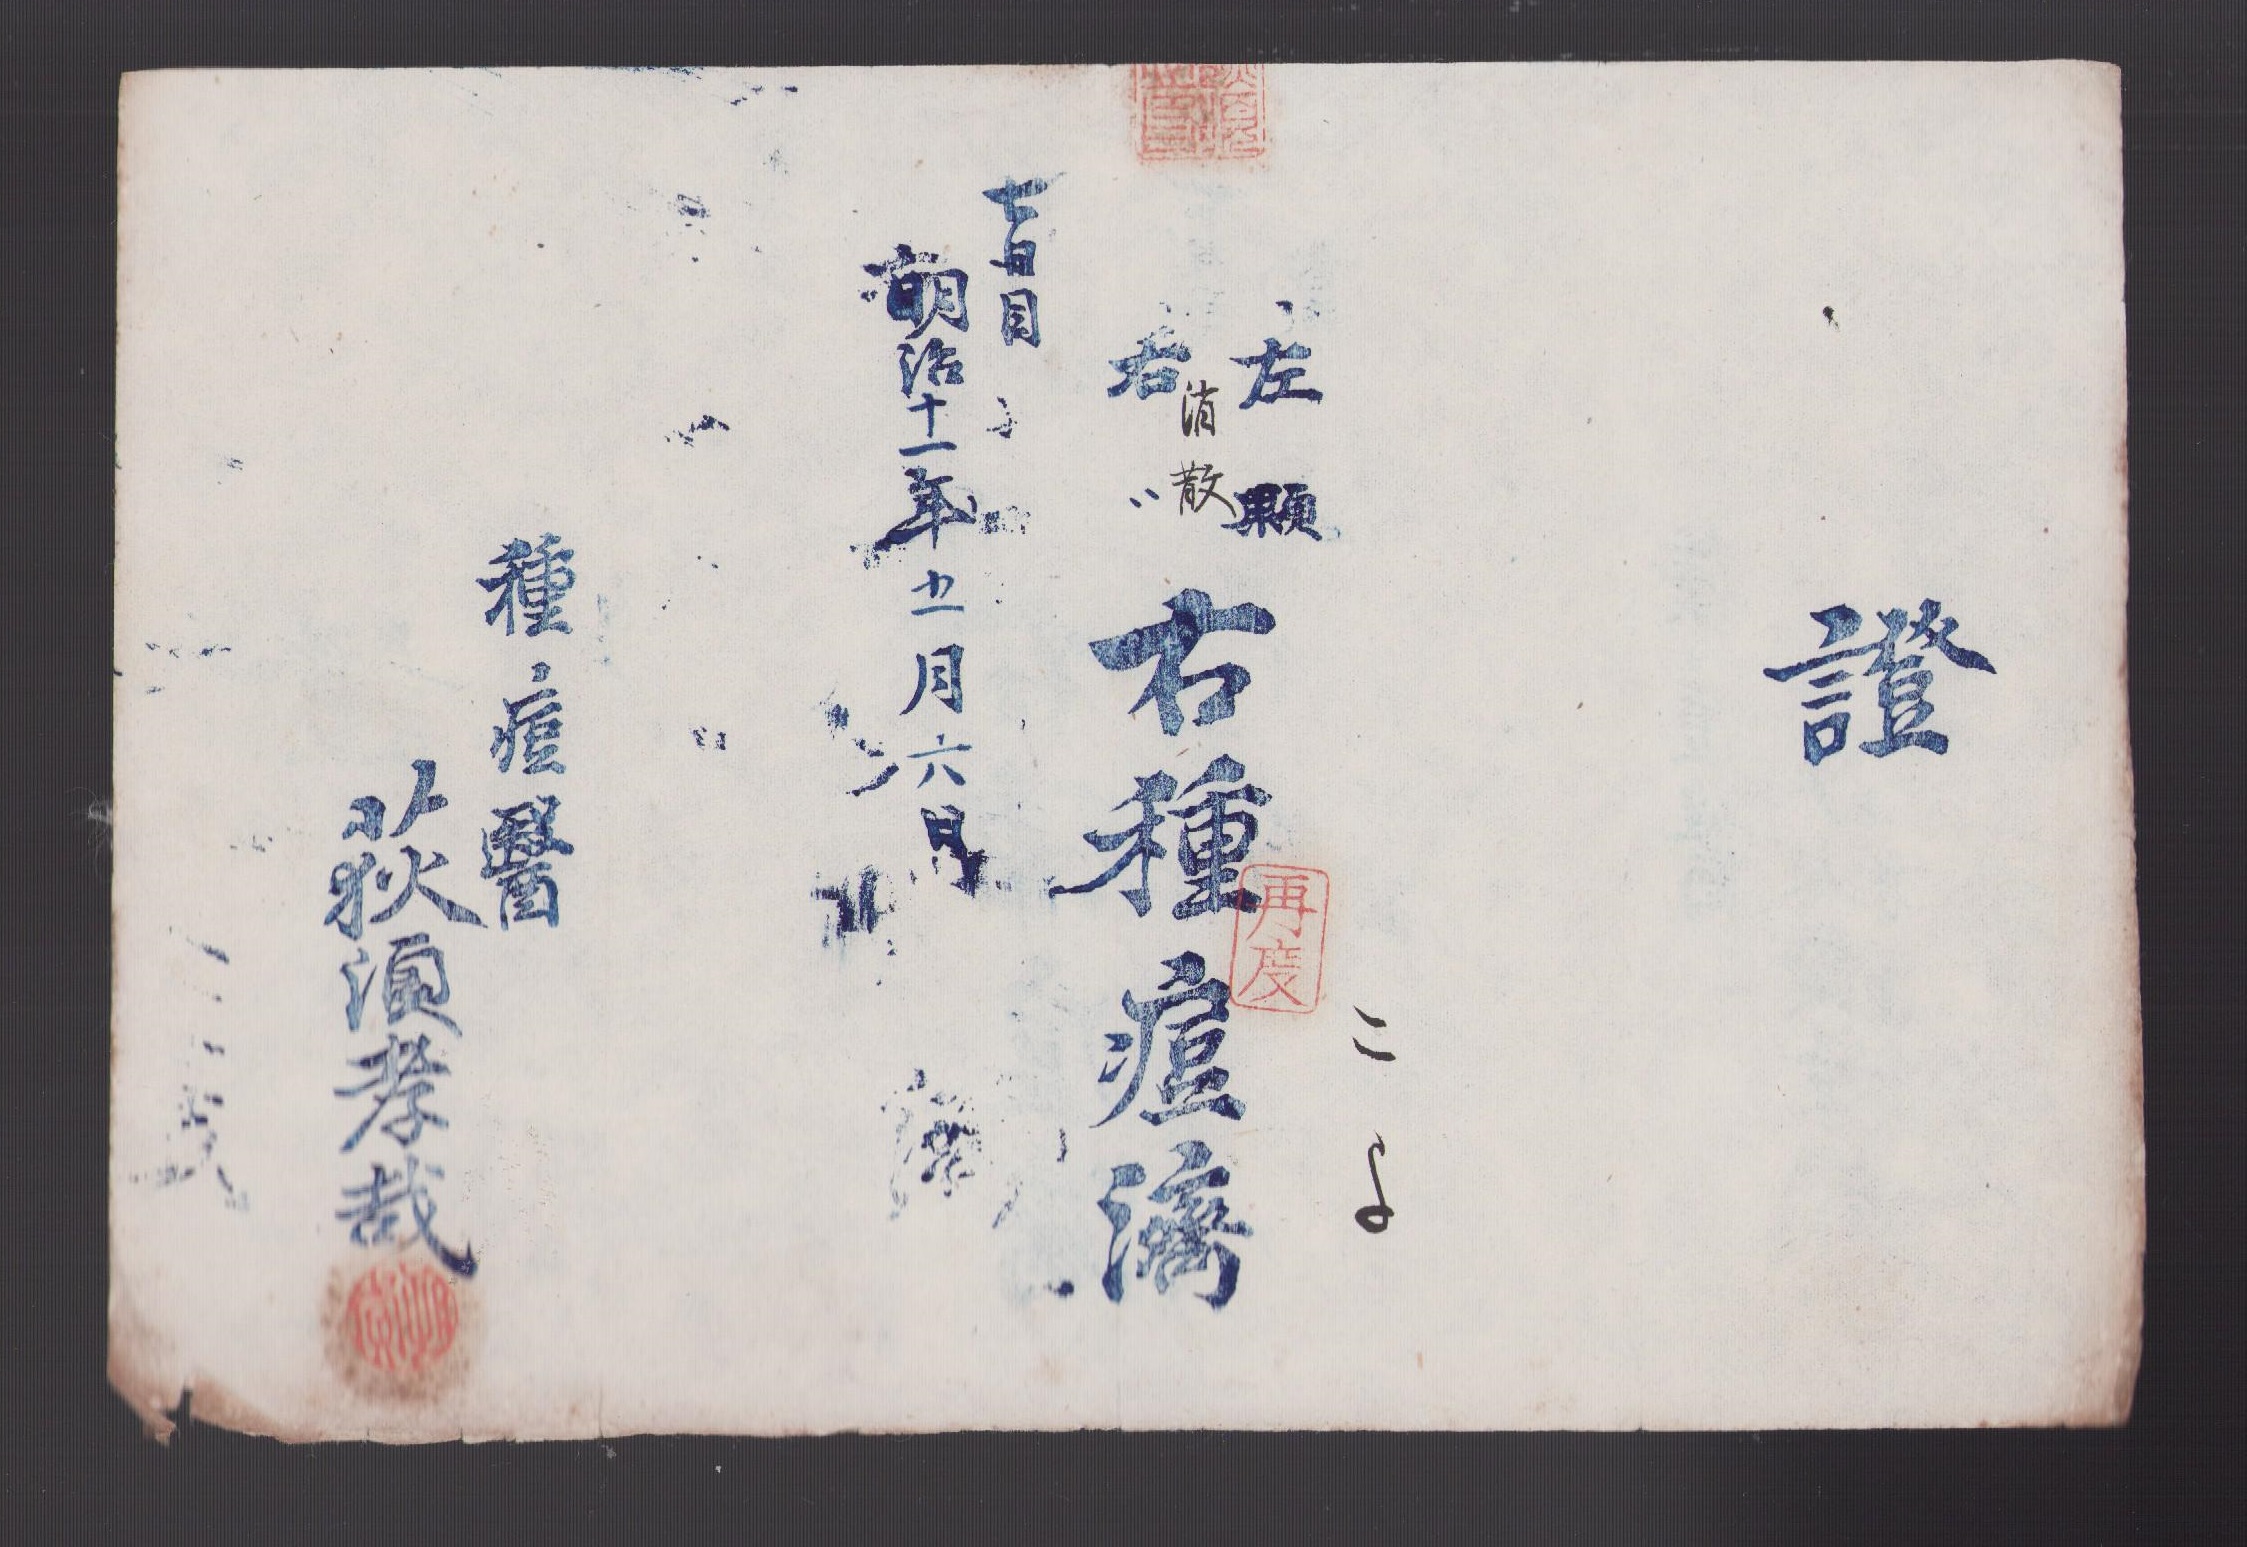 證
こよ
左 顆
消散
右 〃
右種痘濟
再度
七日目
明治十一年五月六日
種痘醫
荻須孝哉